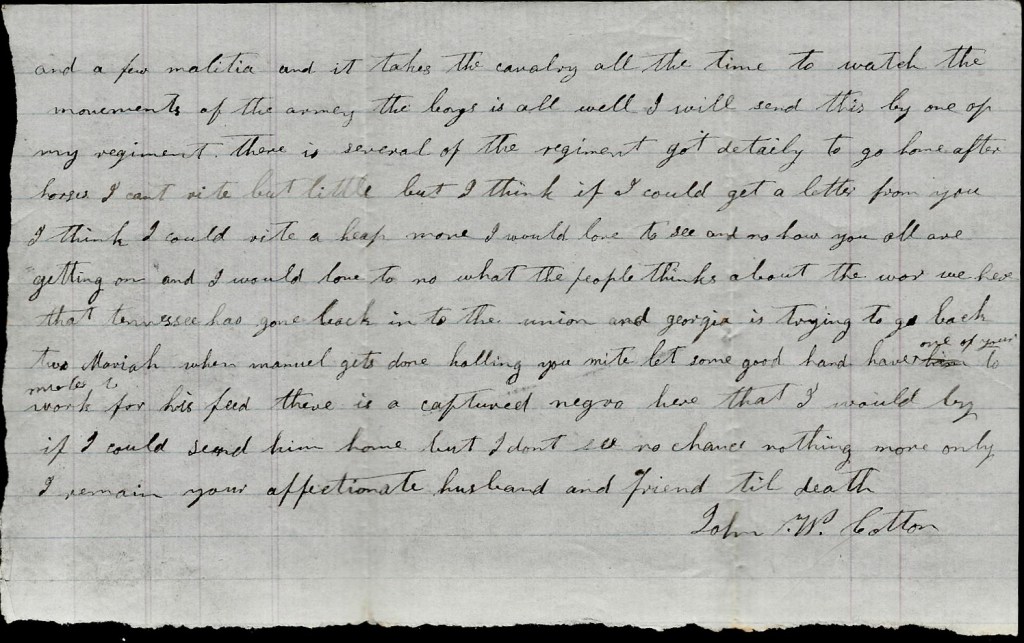 and a few malitia and it takes the cavalry all the time to watch the
movements of the armey the boys is all well I will send this by one of
my regiment. There is several of the regiment got detaily to go home after
horses I cant rite but little but I think if I could get a letter from you
I think I could rite a heap more I would love to see and no how you all are
getting on and I would love to no what the people thinks about the war we here
that tennessee has gone back in to the union and georgia is trying to go back
two Mariah when manuel gets done halling you mite let some good hand have him to
one of your
mules to
work for his feed there is a captured negro here that I would by
if I could send him home but I dont see no chance nothing more only
I remain your affectionate husband and friend til death
John W. Cotton